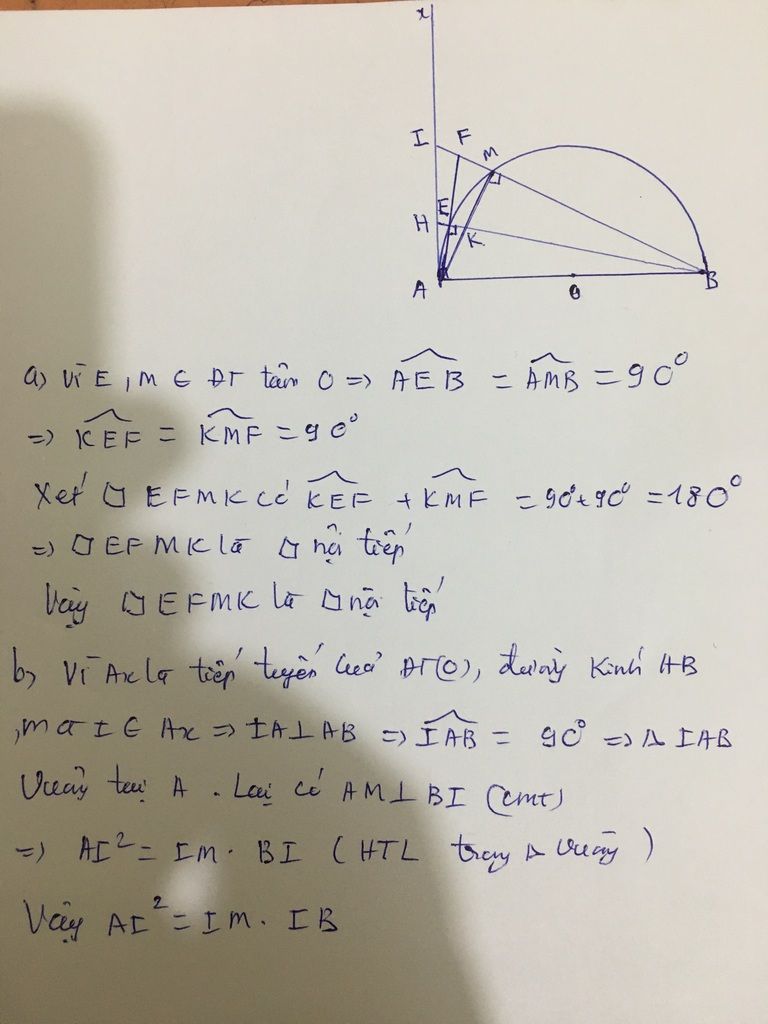 x
I F M
E
H K
A O B
a) Vì E, M ∈ ĐT tâm O => \widehat{AEB} = \widehat{AMB} = 90°
=> \widehat{KEF} = \widehat{KMF} = 90°
Xét □ EFMK có \widehat{KEF} + \widehat{KMF} = 90° + 90° = 180°
=> □ EFMK là □ nội tiếp
Vậy □ EFMK là □ nội tiếp
b, Vì Ax là tiếp tuyến của ĐT(O), đường kính AB
, mà I ∈ Ax => IA ⊥ AB => \widehat{IAB} = 90° => Δ IAB
Vuông tại A . Lại có AM ⊥ BI (cmt)
=> AI² = IM . BI ( HTL trong Δ vuông )
Vậy AI² = IM . IB